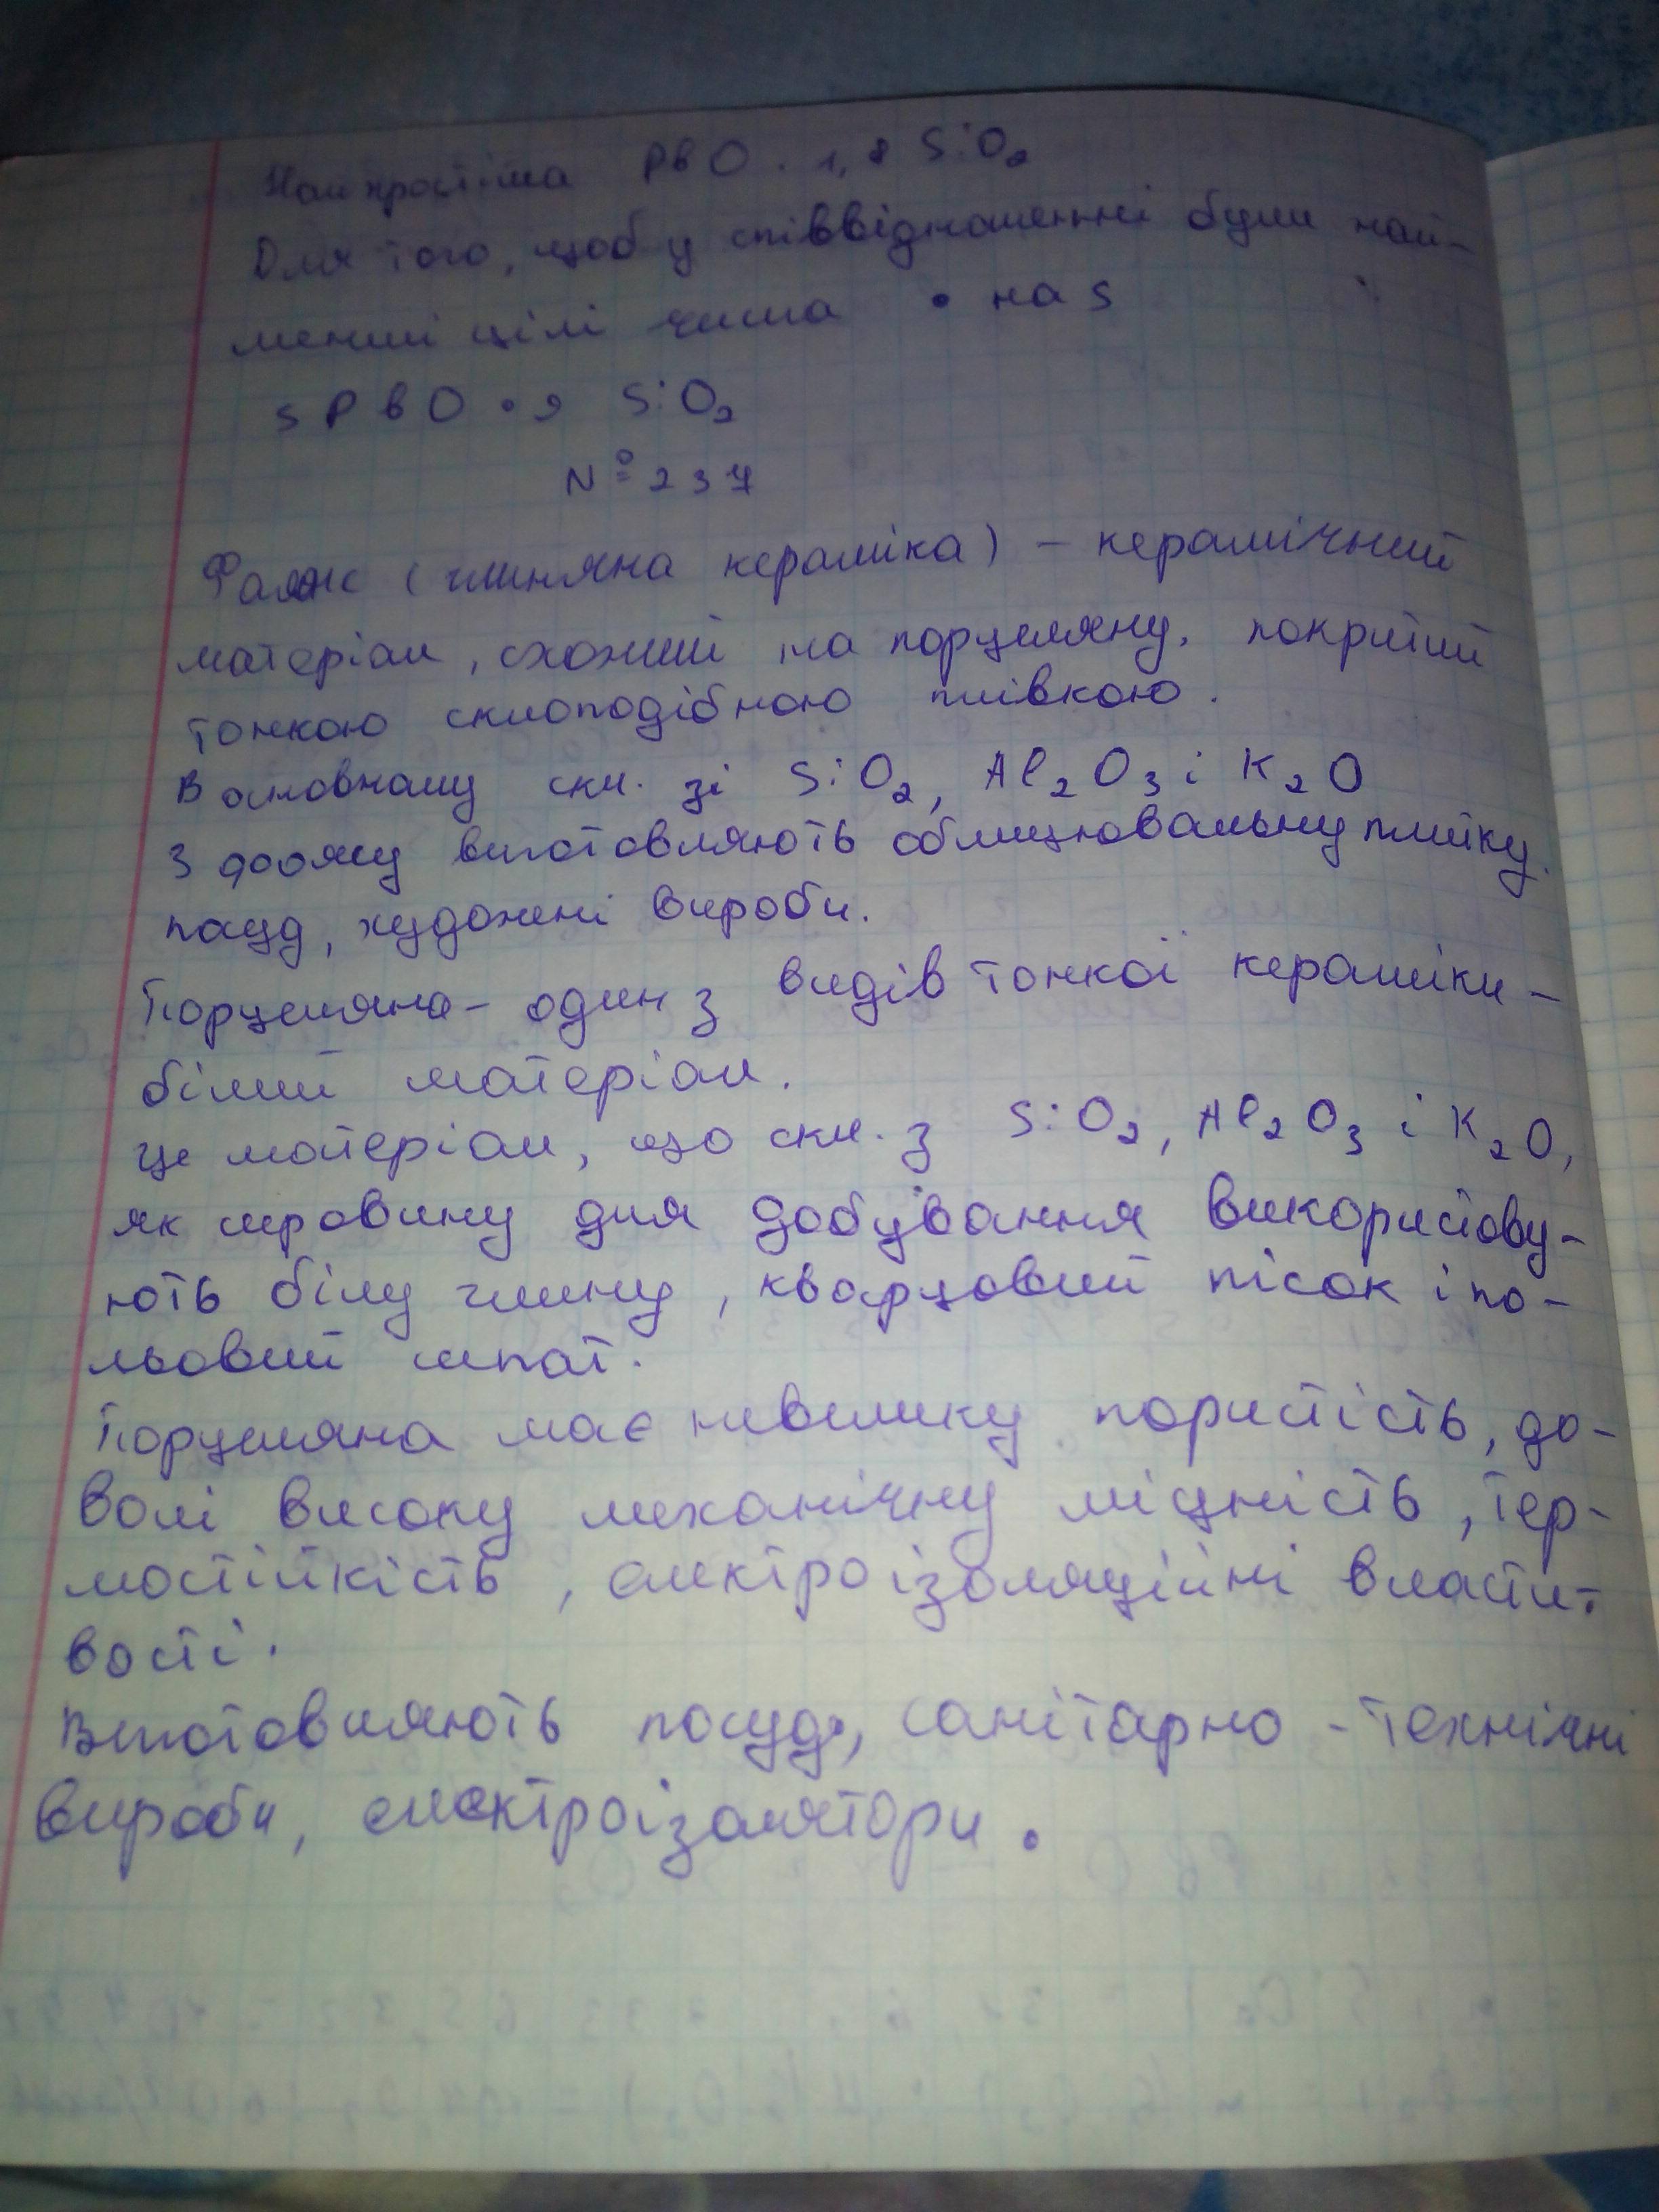 Найпростіша PbO · 1,8 SiO2
Для того, щоб у співвідношенні були най-
менші цілі числа • на 5
5 PbO • 9 SiO2
№ 237
Фаянс (глиняна кераміка) – керамічний
матеріал, схожий на порцеляну, покритий
тонкою склоподібною плівкою.
В основному скл. зі SiO2, Al2O3 і K2O
З фаянсу виготовляють облицювальну плитку,
посуд, художені вироби.
Порцеляна – один з видів тонкої кераміки –
білий матеріал.
Це матеріал, що скл. з SiO2, Al2O3 і K2O,
як сировину для добування використову-
ють білу глину, кварцовий пісок і по-
льовий шпат.
Порцеляна має невелику пористість, до-
волі високу механічну міцність, тер-
мостійкість, електроізоляційні власти-
вості.
Виготовляють посуд, санітарно - технічні
вироби, електроізолятори.